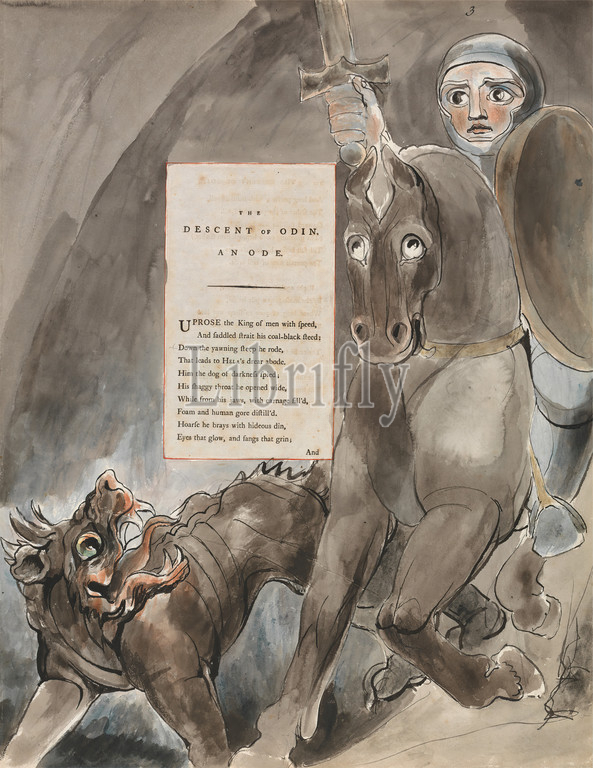 3
THE
DESCENT OF ODIN.
AN ODE.
UPROSE the King of men with ſpeed,
And ſaddled ſtrait his coal-black ſteed;
Down the yawning ſteep he rode,
That leads to HELA's drear abode.
Him the dog of darkneſs ſpied;
His ſhaggy throat he open'd wide,
While from his jaws, with carnage fill'd,
Foam and human gore diſtill'd:
Hoarſe he brays with hideous din,
Eyes that glow, and fangs that grin;
And
Librifly